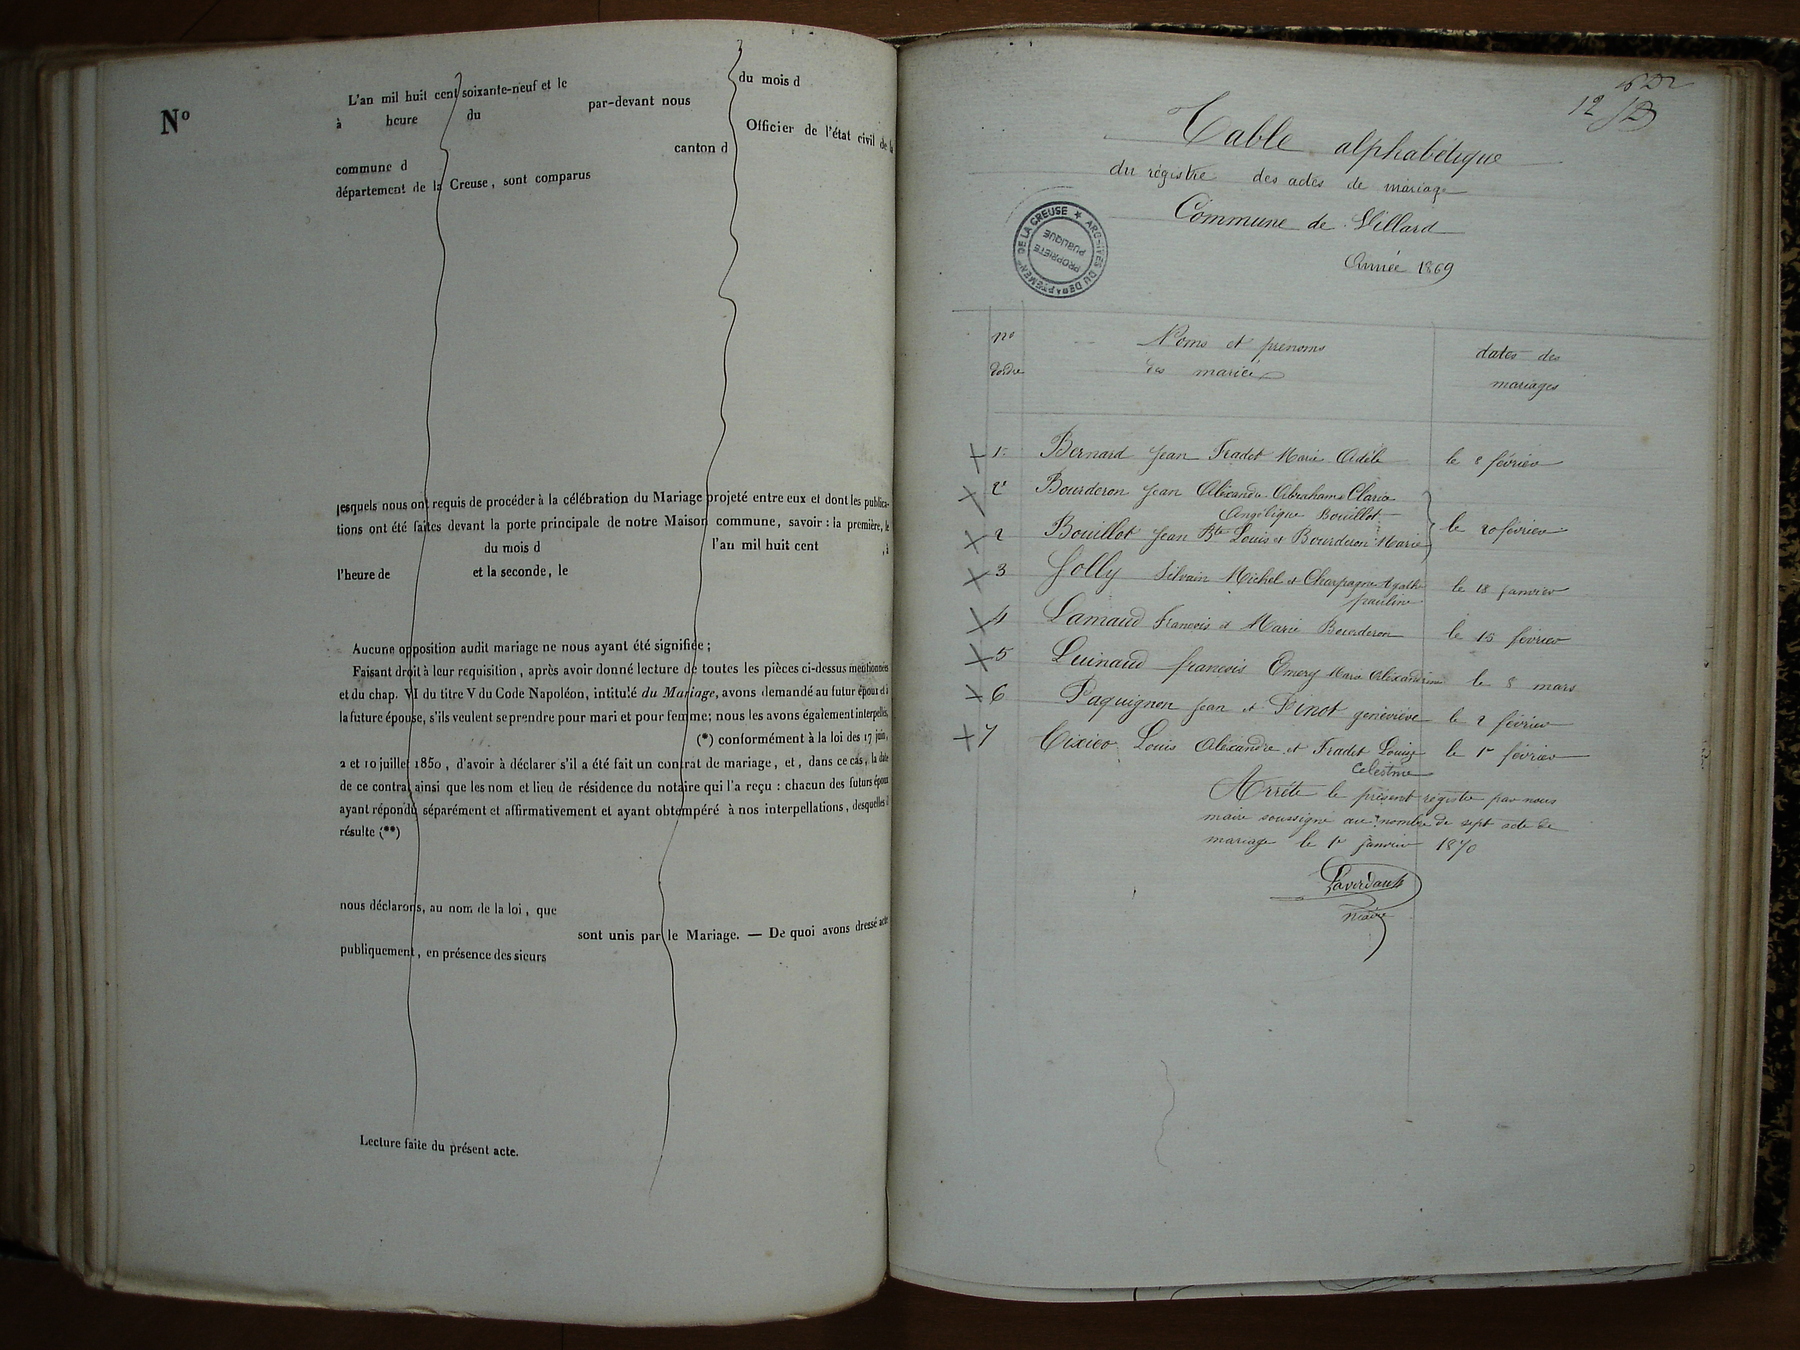 Nº
L'an mil huit cent soixante-neuf et le
du mois d
à heure du
par-devant nous
Officier de l'état civil de la
commune d
canton d
département de la Creuse, sont comparus
lesquels nous ont requis de procéder à la célébration du Mariage projeté entre eux et dont les publica-
tions ont été faites devant la porte principale de notre Maison commune, savoir : la première, le
du mois d l'an mil huit cent , à
l'heure de et la seconde, le
Aucune opposition audit mariage ne nous ayant été signifiée ;
Faisant droit à leur requisition, après avoir donné lecture de toutes les pièces ci-dessus mentionnées
et du chap. VI du titre V du Code Napoléon, intitulé du Mariage, avons demandé au futur époux et à
la future épouse, s'ils veulent se prendre pour mari et pour femme; nous les avons également interpellés,
(*) conformément à la loi des 17 juin,
2 et 10 juillet 1850, d'avoir à déclarer s'il a été fait un contrat de mariage, et, dans ce cas, la date
de ce contrat ainsi que les nom et lieu de résidence du notaire qui l'a reçu : chacun des futurs époux
ayant répondu séparément et affirmativement et ayant obtempéré à nos interpellations, desquelles il
résulte (**)
nous déclarons, au nom de la loi, que
sont unis par le Mariage. — De quoi avons dressé acte
publiquement, en présence des sieurs
Lecture faite du présent acte.
12
Table alphabétique
du régistre des actes de mariage
Commune de Villard
Année 1869
ARCHIVES DU DEPARTEMENT DE LA CREUSE
PROPRIETE PUBLIQUE
nº d'ordre
Noms et prénoms des mariés
dates des mariages
1 Bernard Jean Fradet Marie Adèle le 8 février
2 Bourderon Jean Alexandre Abrahams Clarice
Angélique Bouillot
2 Bouillot Jean Bte Louis et Bourderon Marie le 20 février
3 Jolly Silvain Michel et Champagne Agathe le 18 janvier
pauline
4 Lamaud François et Marie Bourderon le 15 février
5 Luinaud françois Emery Marie Alexandrine le 8 mars
6 Paquignon Jean et Pinot geneviève le 2 février
7 Tixier Louis Alexandre et Fradet Louise le 1er février
Celestine
Arrêté le présent régistre par nous
maire soussigné au nombre de sept acte de
mariage le 1er janvier 1870
maire